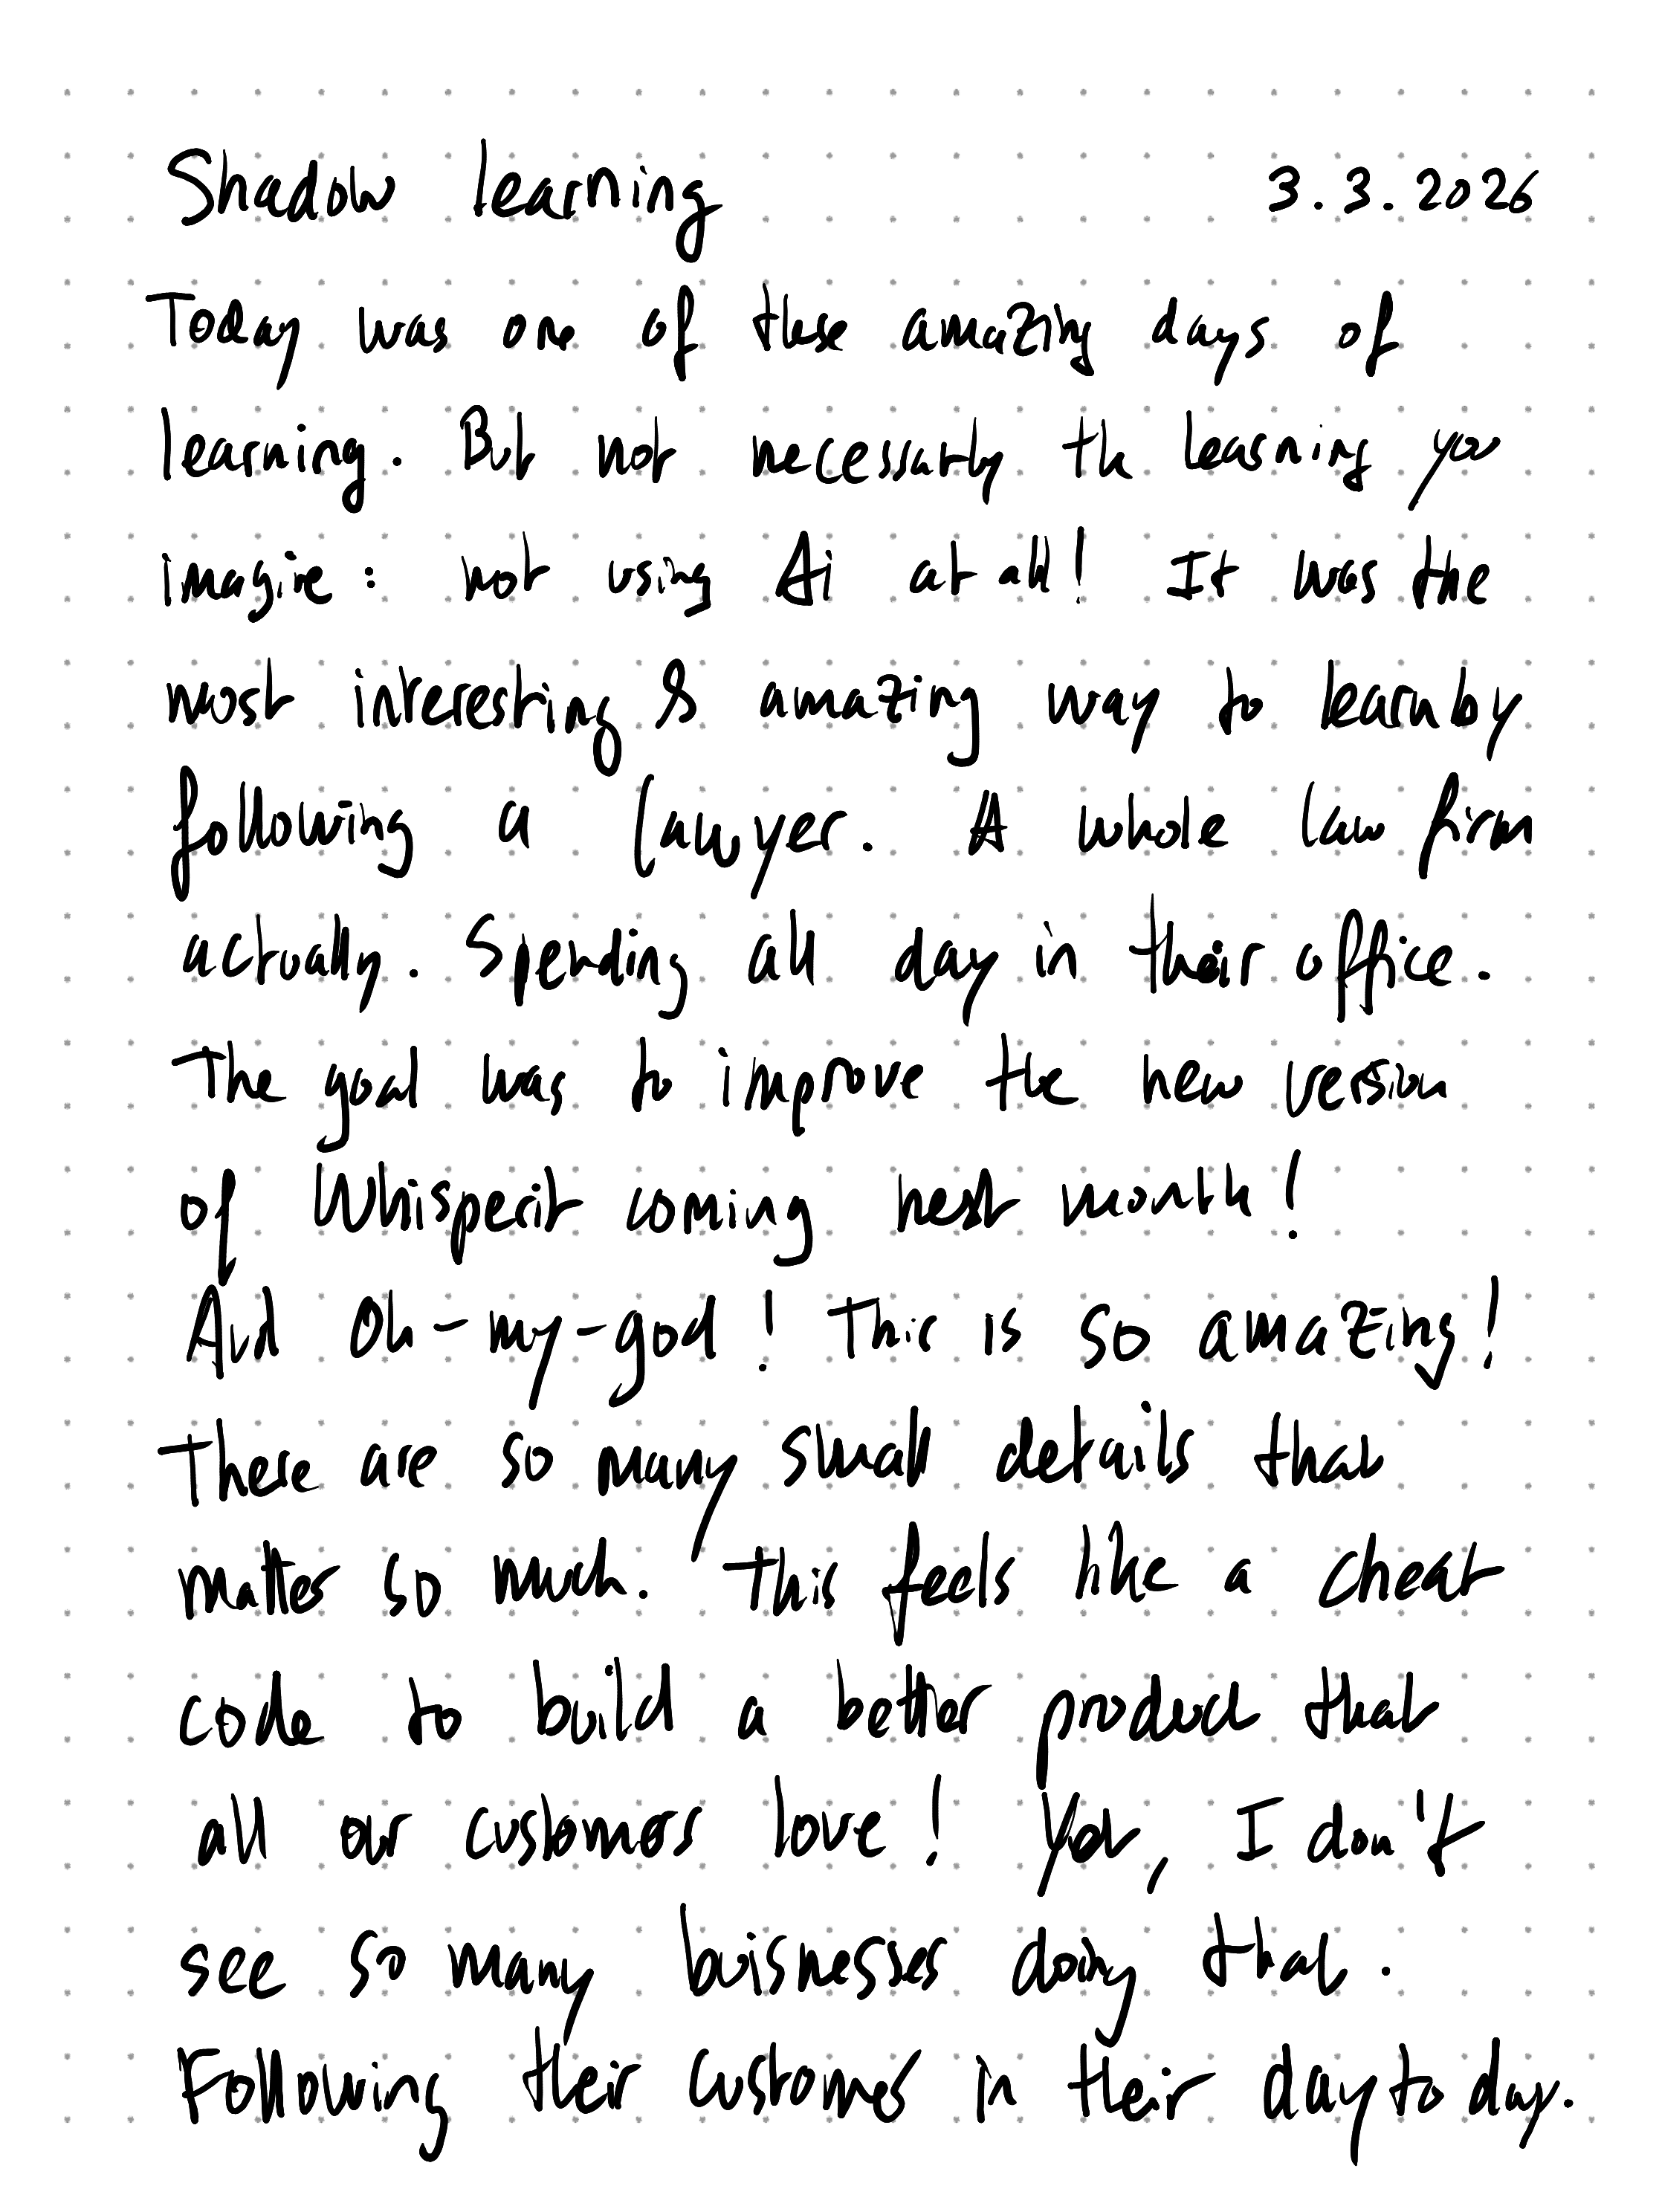 Shadow learning 3.3.2026
Today was one of these amazing days of
learning. But not necessarly the learning you
imagine: not using Ai at all! It was the
most interesting & amazing way to learn by
following a lawyer. A whole law firm
actually. Spending all day in their office.
The goal was to improve the new version
of Whisperit coming next month!
And Oh-my-god! This is so amazing!
There are so many small details that
matter so much. This feels like a cheat
code to build a better product that
all our customers love! Yet, I don't
see so many buisnesses doing that.
Following their customer in their day to day.